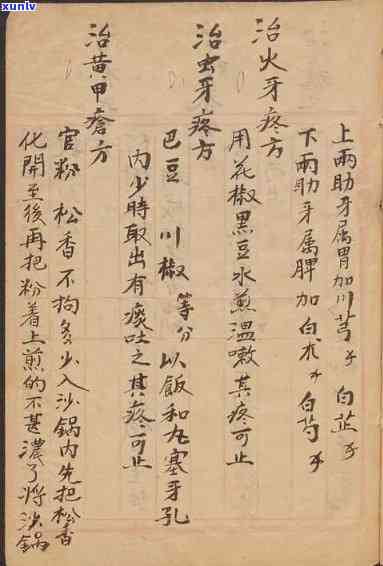 xunlv
上兩助牙属胃加川芎 白芷
下兩助牙属脾加白朮 白芍
治火牙疼方
用花椒黑豆水煎溫嗽其疼可止
治虫牙疼方
巴豆 川椒 等分以飯和丸塞牙孔
內少時取出有痰吐之其疼可止
治黃甲瘡方
官粉 松香不拘多少入沙锅內先把松香
化開至後再把粉着上煎的不甚濃了将沙锅